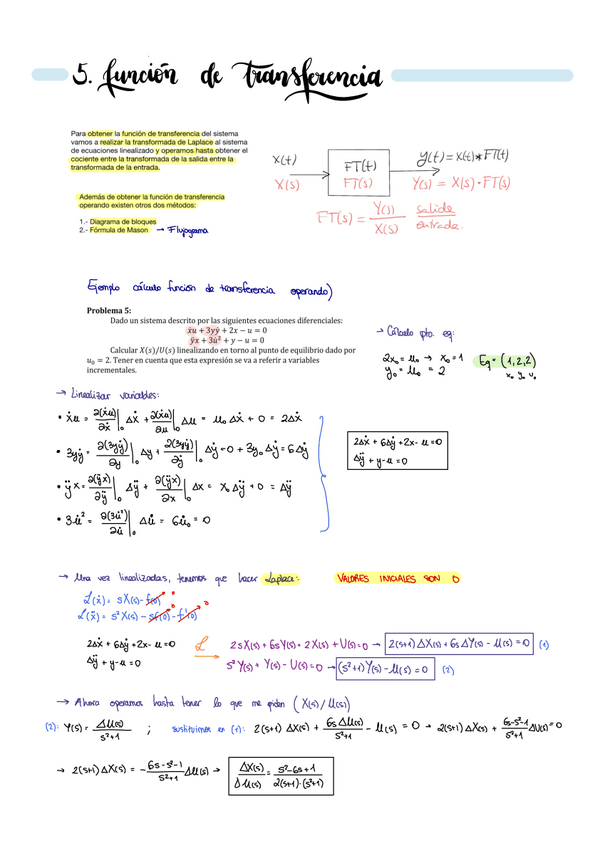 5. función de transferencia
Para obtener la función de transferencia del sistema
vamos a realizar la transformada de Laplace al sistema
de ecuaciones linealizado y operamos hasta obtener el
cociente entre la transformada de la salida entre la
transformada de la entrada.
Además de obtener la función de transferencia
operando existen otros dos métodos:
1.- Diagrama de bloques
2.- Fórmula de Mason → Flujograma
X(t) FT(t) y(t) = X(t) * FT(t)
X(s) FT(s) Y(s) = X(s) · FT(s)
FT(s) = Y(s)/X(s) salida/entrada.
Ejemplo cálculo función de transferencia operando)
Problema 5:
Dado un sistema descrito por las siguientes ecuaciones diferenciales:
ẋu + 3yẏ + 2x − u = 0
ÿx + 3u̇² + y − u = 0
Calcular X(s)/U(s) linealizando en torno al punto de equilibrio dado por
u₀ = 2. Tener en cuenta que esta expresión se va a referir a variables
incrementales.
→ Cálculo pto. eq:
2x₀ = u₀ → x₀ = 1
y₀ = u₀ = 2
Eq = (1,2,2)
x₀ y₀ u₀
→ Linealizar variables:
• ẋu = ∂(ẋu)/∂ẋ|₀ Δẋ + ∂(ẋu)/∂u|₀ Δu = u₀ Δẋ + 0 = 2Δẋ
• 3yẏ = ∂(3yẏ)/∂y|₀ Δy + ∂(3yẏ)/∂ẏ|₀ Δẏ = 0 + 3y₀ Δẏ = 6Δẏ
• ÿx = ∂(ÿx)/∂ÿ|₀ Δÿ + ∂(ÿx)/∂x|₀ Δx = x₀ Δÿ + 0 = Δÿ
• 3u̇² = ∂(3u̇²)/∂u̇|₀ Δu̇ = 6u̇₀ = 0
2Δẋ + 6Δẏ + 2x - u = 0
Δÿ + y - u = 0
→ Una vez linealizadas, tenemos que hacer Laplace: VALORES INICIALES SON 0
ℒ(ẋ) = sX(s) - f(0) 0
ℒ(ẍ) = s²X(s) - sf(0) - f'(0) 0 0
2Δẋ + 6Δẏ + 2x - u = 0 ℒ 2sX(s) + 6sY(s) + 2X(s) + U(s) = 0 → 2(s+1)ΔX(s) + 6sΔY(s) - U(s) = 0 (1)
Δÿ + y - u = 0 → s²Y(s) + Y(s) - U(s) = 0 → (s²+1)Y(s) - U(s) = 0 (2)
→ Ahora operamos hasta tener lo que me piden (X(s)/U(s))
(2): Y(s) = ΔU(s)/s²+1 ; sustituimos en (1): 2(s+1) ΔX(s) + 6sΔU(s)/s²+1 - U(s) = 0 → 2(s+1)ΔX(s) + 6s-s²-1/s²+1 ΔU(s) = 0
→ 2(s+1)ΔX(s) = - 6s-s²-1/s²+1 ΔU(s) → ΔX(s)/ΔU(s) = s²-6s+1/2(s+1)·(s²+1)